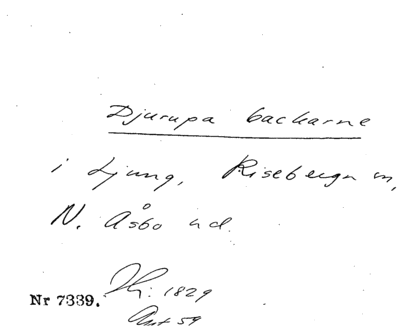 Djurupa backarne
i Ljung, Riseberga sn,
N. Åsbo hd.
Nr 7339. : 1829
Ant 59